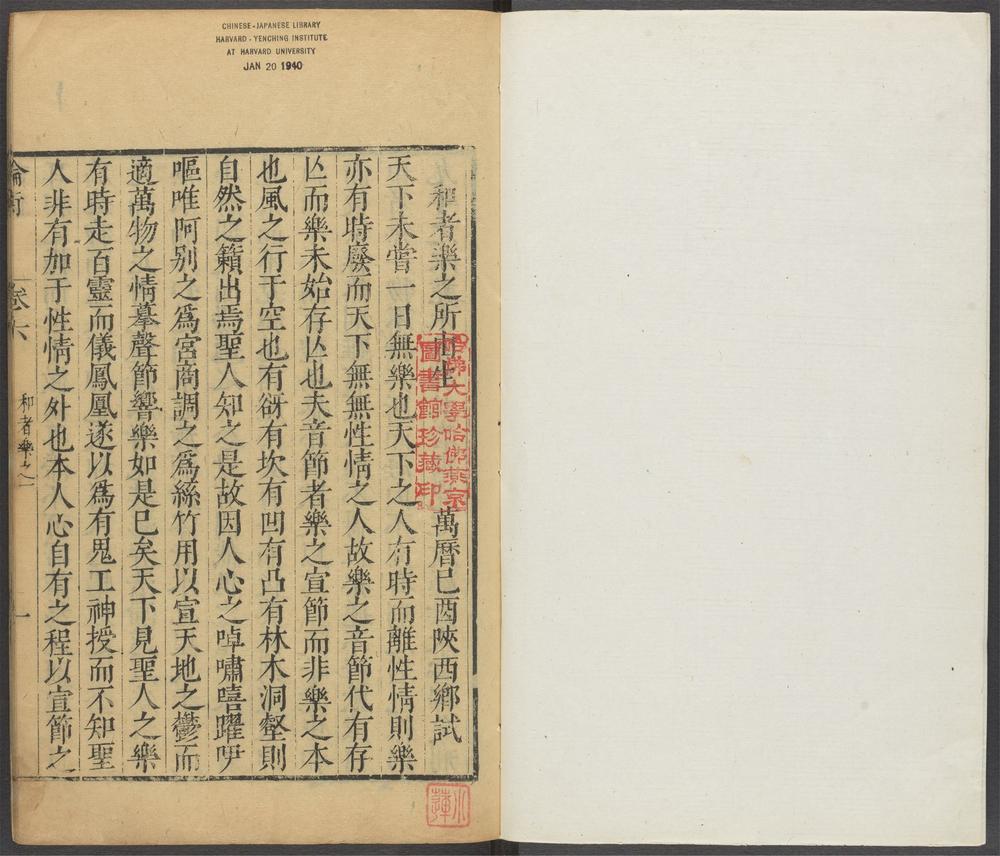 CHINESE-JAPANESE LIBRARY
HARVARD-YENCHING INSTITUTE
AT HARVARD UNIVERSITY
JAN 20 1940
和者樂之所由生 萬曆己酉陝西鄉試
天下未嘗一日無樂也天下之人有時而離性情則樂
亦有時廢而天下無無性情之人故樂之音節代有存
亾而樂未始存亾也夫音節者樂之宣節而非樂之本
也風之行于空也有谺有坎有凹有凸有林木洞壑則
自然之籟出焉聖人知之是故因人心之啅嘯嘻躍吚
嘔唯阿别之爲宮商調之爲絲竹用以宣天地之鬱而
適萬物之情摹聲節響樂如是已矣天下見聖人之樂
有時走百靈而儀鳳凰遂以爲有鬼工神授而不知聖
人非有加于性情之外也本人心自有之程以宣節之
卷六
和者樂之
一
哈佛大學哈佛燕京
圖書館珍藏印